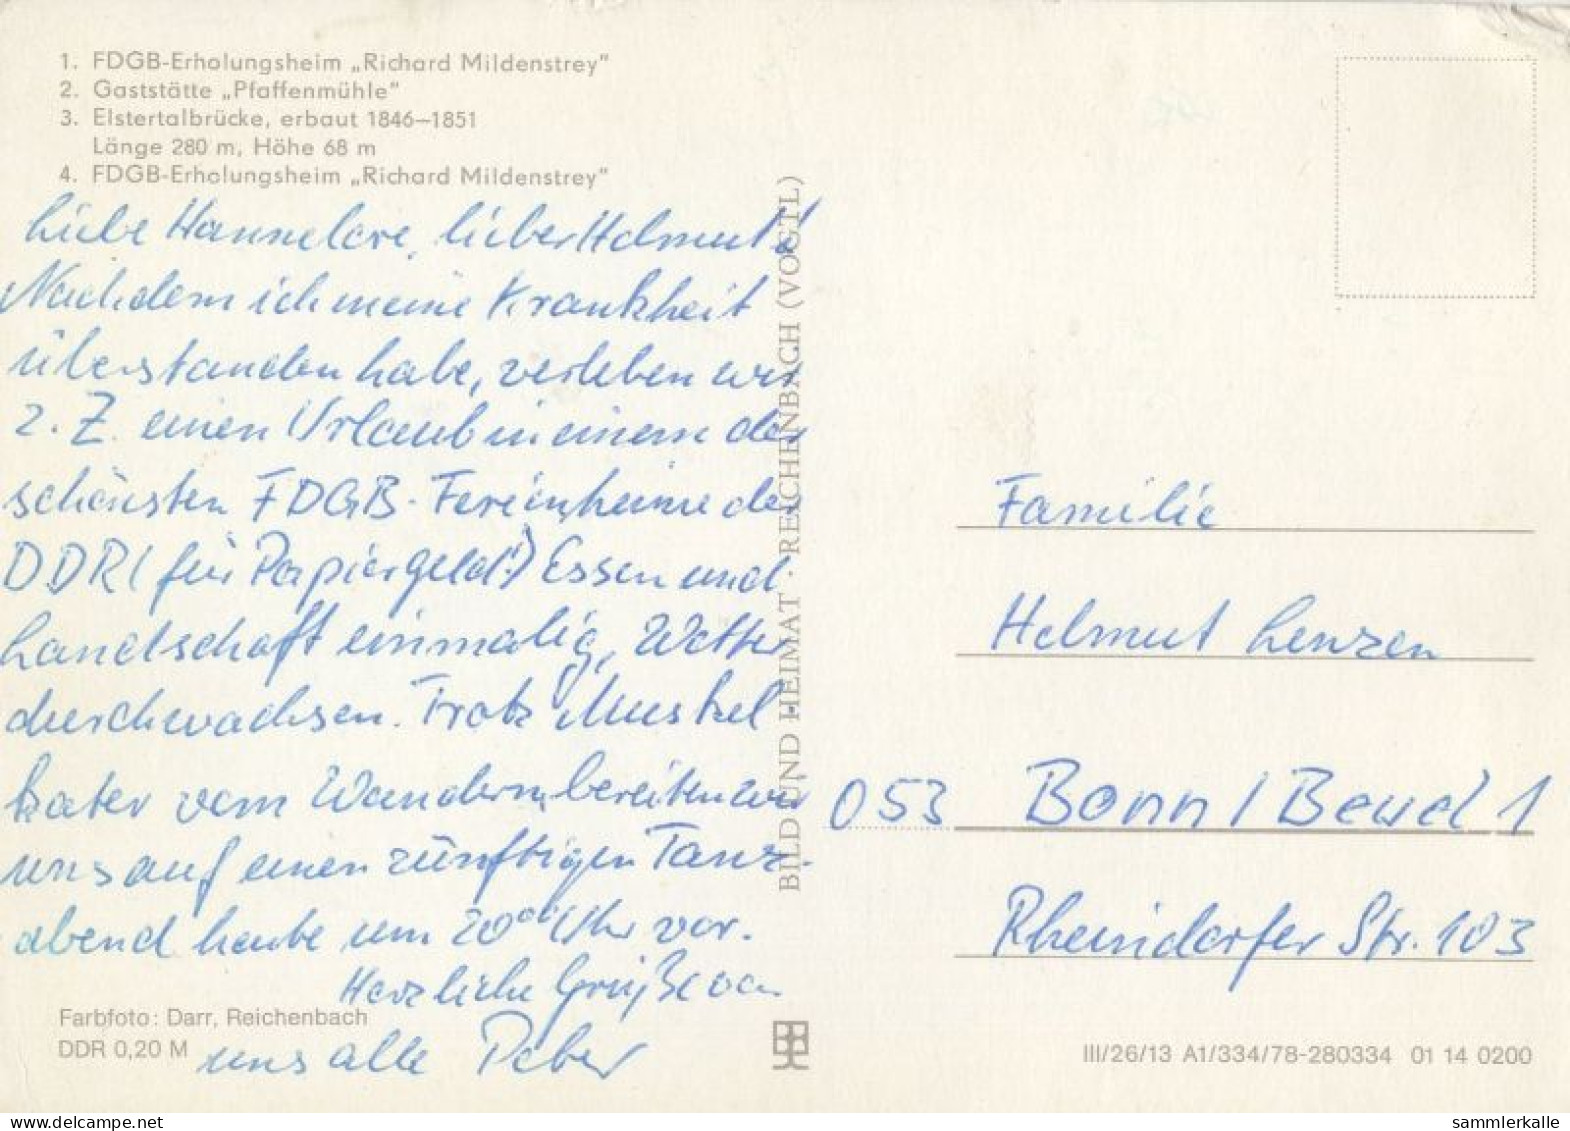 1. FDGB-Erholungsheim „Richard Mildenstrey"
2. Gaststätte „Pfaffenmühle"
3. Elstertalbrücke, erbaut 1846—1851
Länge 280 m, Höhe 68 m
4. FDGB-Erholungsheim „Richard Mildenstrey"
Liebe Hannelore, lieber Helmut!
Nachdem ich meine Krankheit
überstanden habe, verleben wir
z. Z. einen Urlaub in einem der
schönsten FDGB-Ferienheime der
DDR (für Papiergeld!) Essen und
Landschaft einmalig, Wetter
durchwachsen. Trotz Muskel
kater vom Wandern, bereiten wir
uns auf einen zünftigen Tanz-
abend heute um 20°° Uhr vor.
Herzliche Grüße von
uns alle Peter
Farbfoto: Darr, Reichenbach
DDR 0,20 M
BILD UND HEIMAT · REICHENBACH (VOGTL)
Familie
Helmut Lenzen
053 Bonn / Beuel 1
Rheindorfer Str. 103
III/26/13 A1/334/78-280334 01 14 0200
www.delcampe.net
sammlerkalle